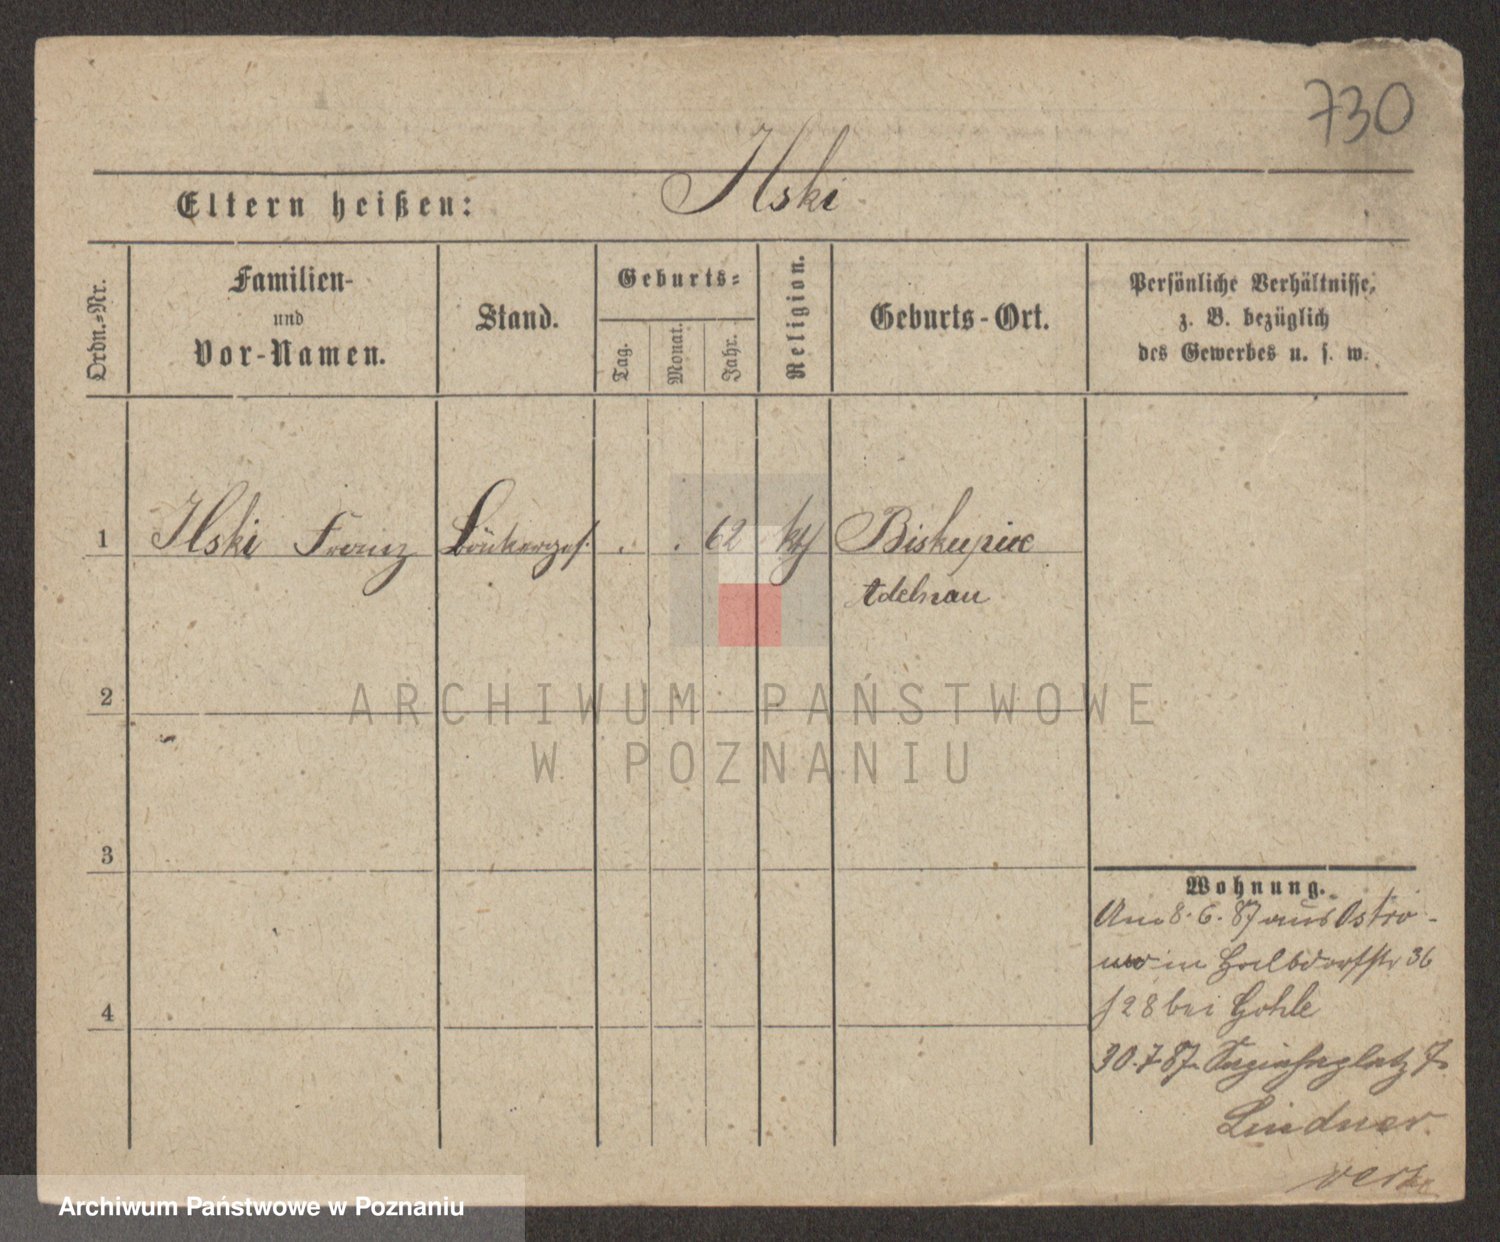 730
Ilski
Eltern heißen:
Ordn.-Nr.
Familien-
und
Vor-Namen.
Stand.
Geburts-
Tag.
Monat.
Jahr.
Religion.
Geburts-Ort.
Persönliche Verhältnisse,
z. B. bezüglich
des Gewerbes u. s. w.
1 Ilski Franz . . 62 kth Biskupice
Adelnau
2
ARCHIWUM PAŃSTWOWE
W POZNANIU
3
Wohnung.
Am 8.6.87 aus Ostro-
wo in Halbdorfstr 36
bei Hohle
4
30.7.87. 7
Lindner
Archiwum Państwowe w Poznaniu